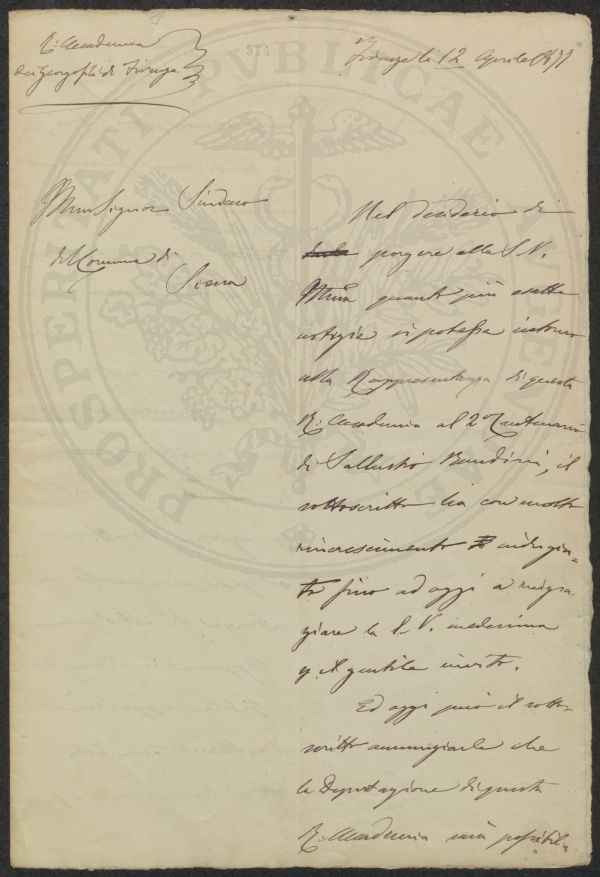 R: Accademia
dei Georgofili di Firenze
974
Firenze li 12 Aprile 1877
PROSPERITATI PVBLICAE
Illmo Signor Sindaco
di Comune di
Siena
Nel desiderio di
porgere alla S.V.
Illma quanto più esatte
notizie si potesse intorno
alla Rappresentanza di questa
R: Accademia al 2º Centenario
di Sallustio Bandini, il
sottoscritto ha con molto
rincrescimento indugia=
to fino ad oggi a ringra-
ziare la S.V. medesima
pel gentile invito.
Ed oggi può il sotto-
scritto annunziarle che
la Deputazione di questa
R: Accademia sarà possibil=